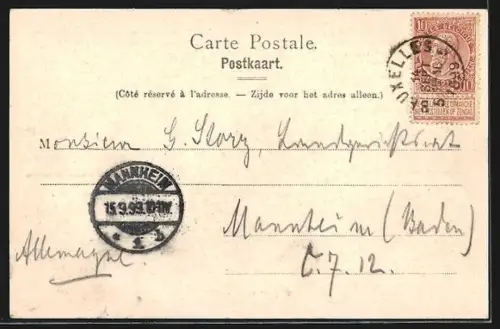 Carte Postale.
Postkaart.
(Côté réservé à l'adresse. — Zijde voor het adres alleen.)
BRUXELLES
14
SEPT
5
1899
10 10
Monsieur G. Storz, Landgerichtsrat
MANNHEIM
15.9.99.
* 1 *
Mannheim (Baden)
Allemagne
C. 7. 12.